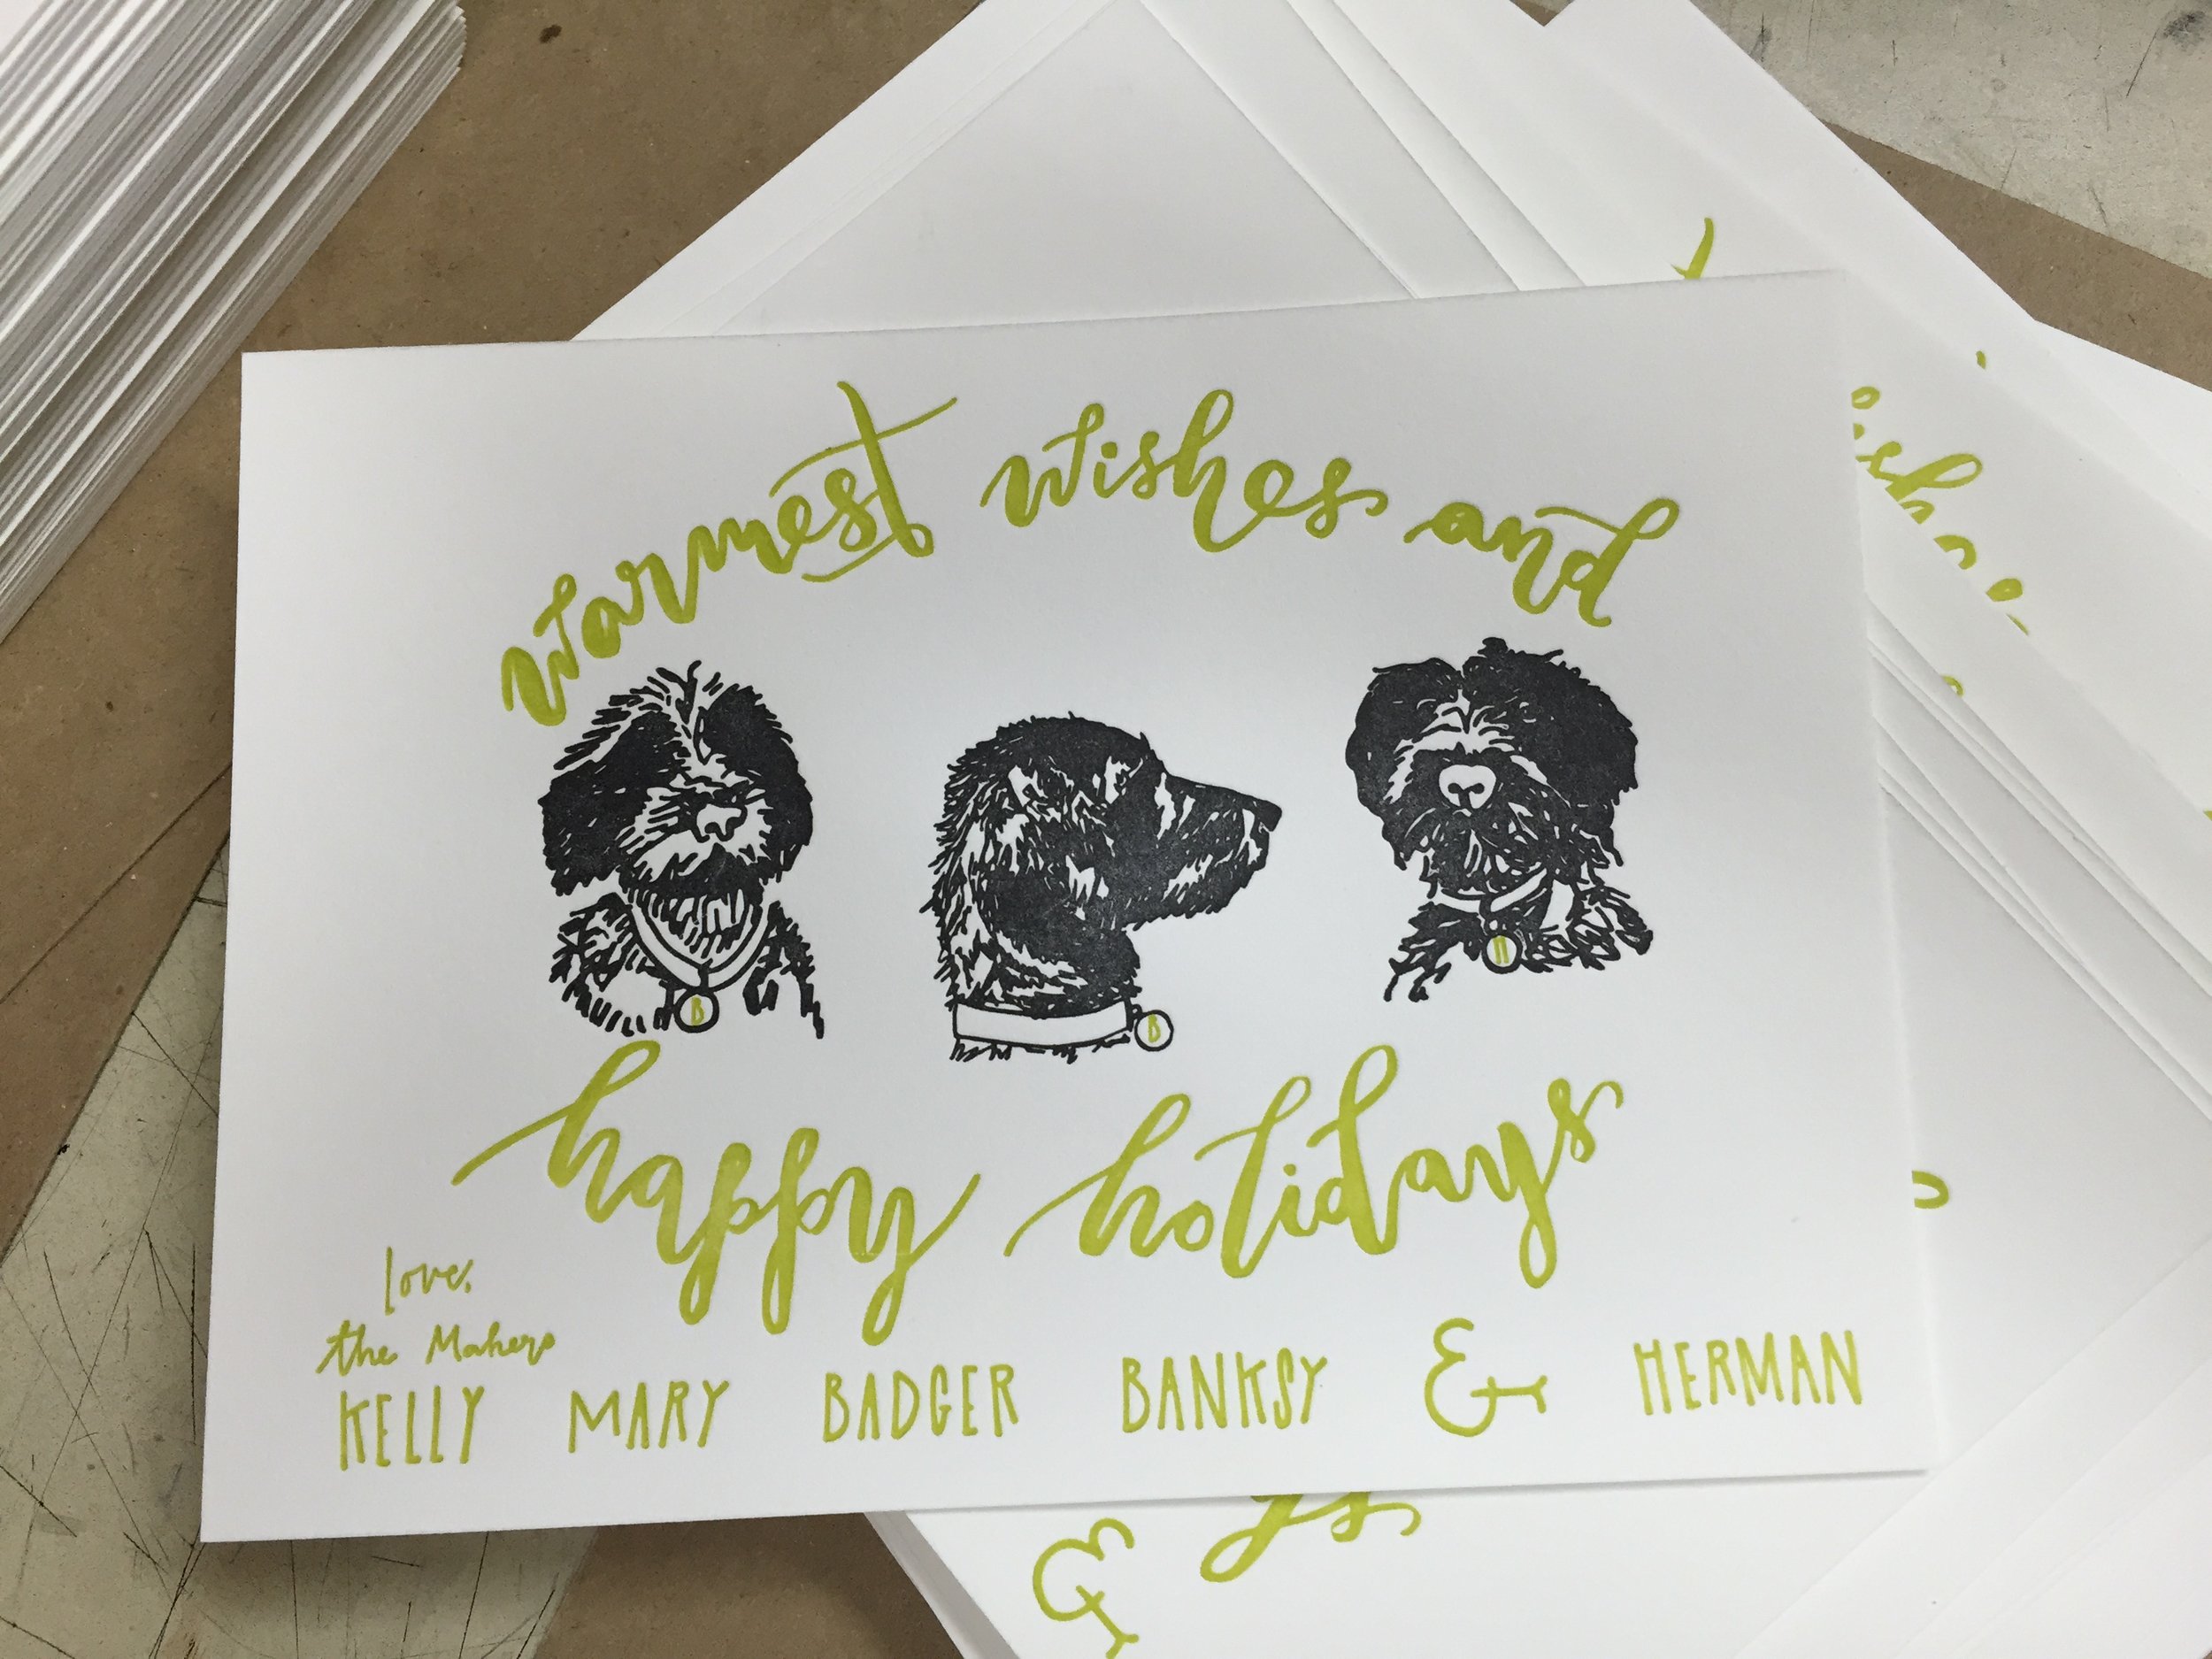 warmest wishes and
B
B
H
happy holidays
love,
the Makers
KELLY MARY BADGER BANKSY & HERMAN
ys
&